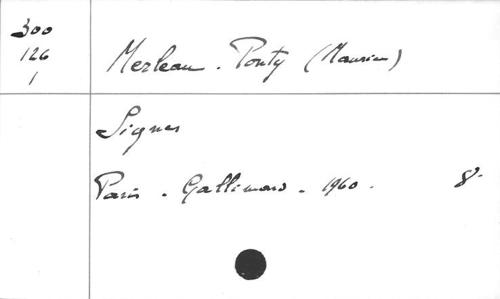 300
126
1
Merleau-Ponty (Maurice)
Signes
Paris - Gallimard - 1960. 8°